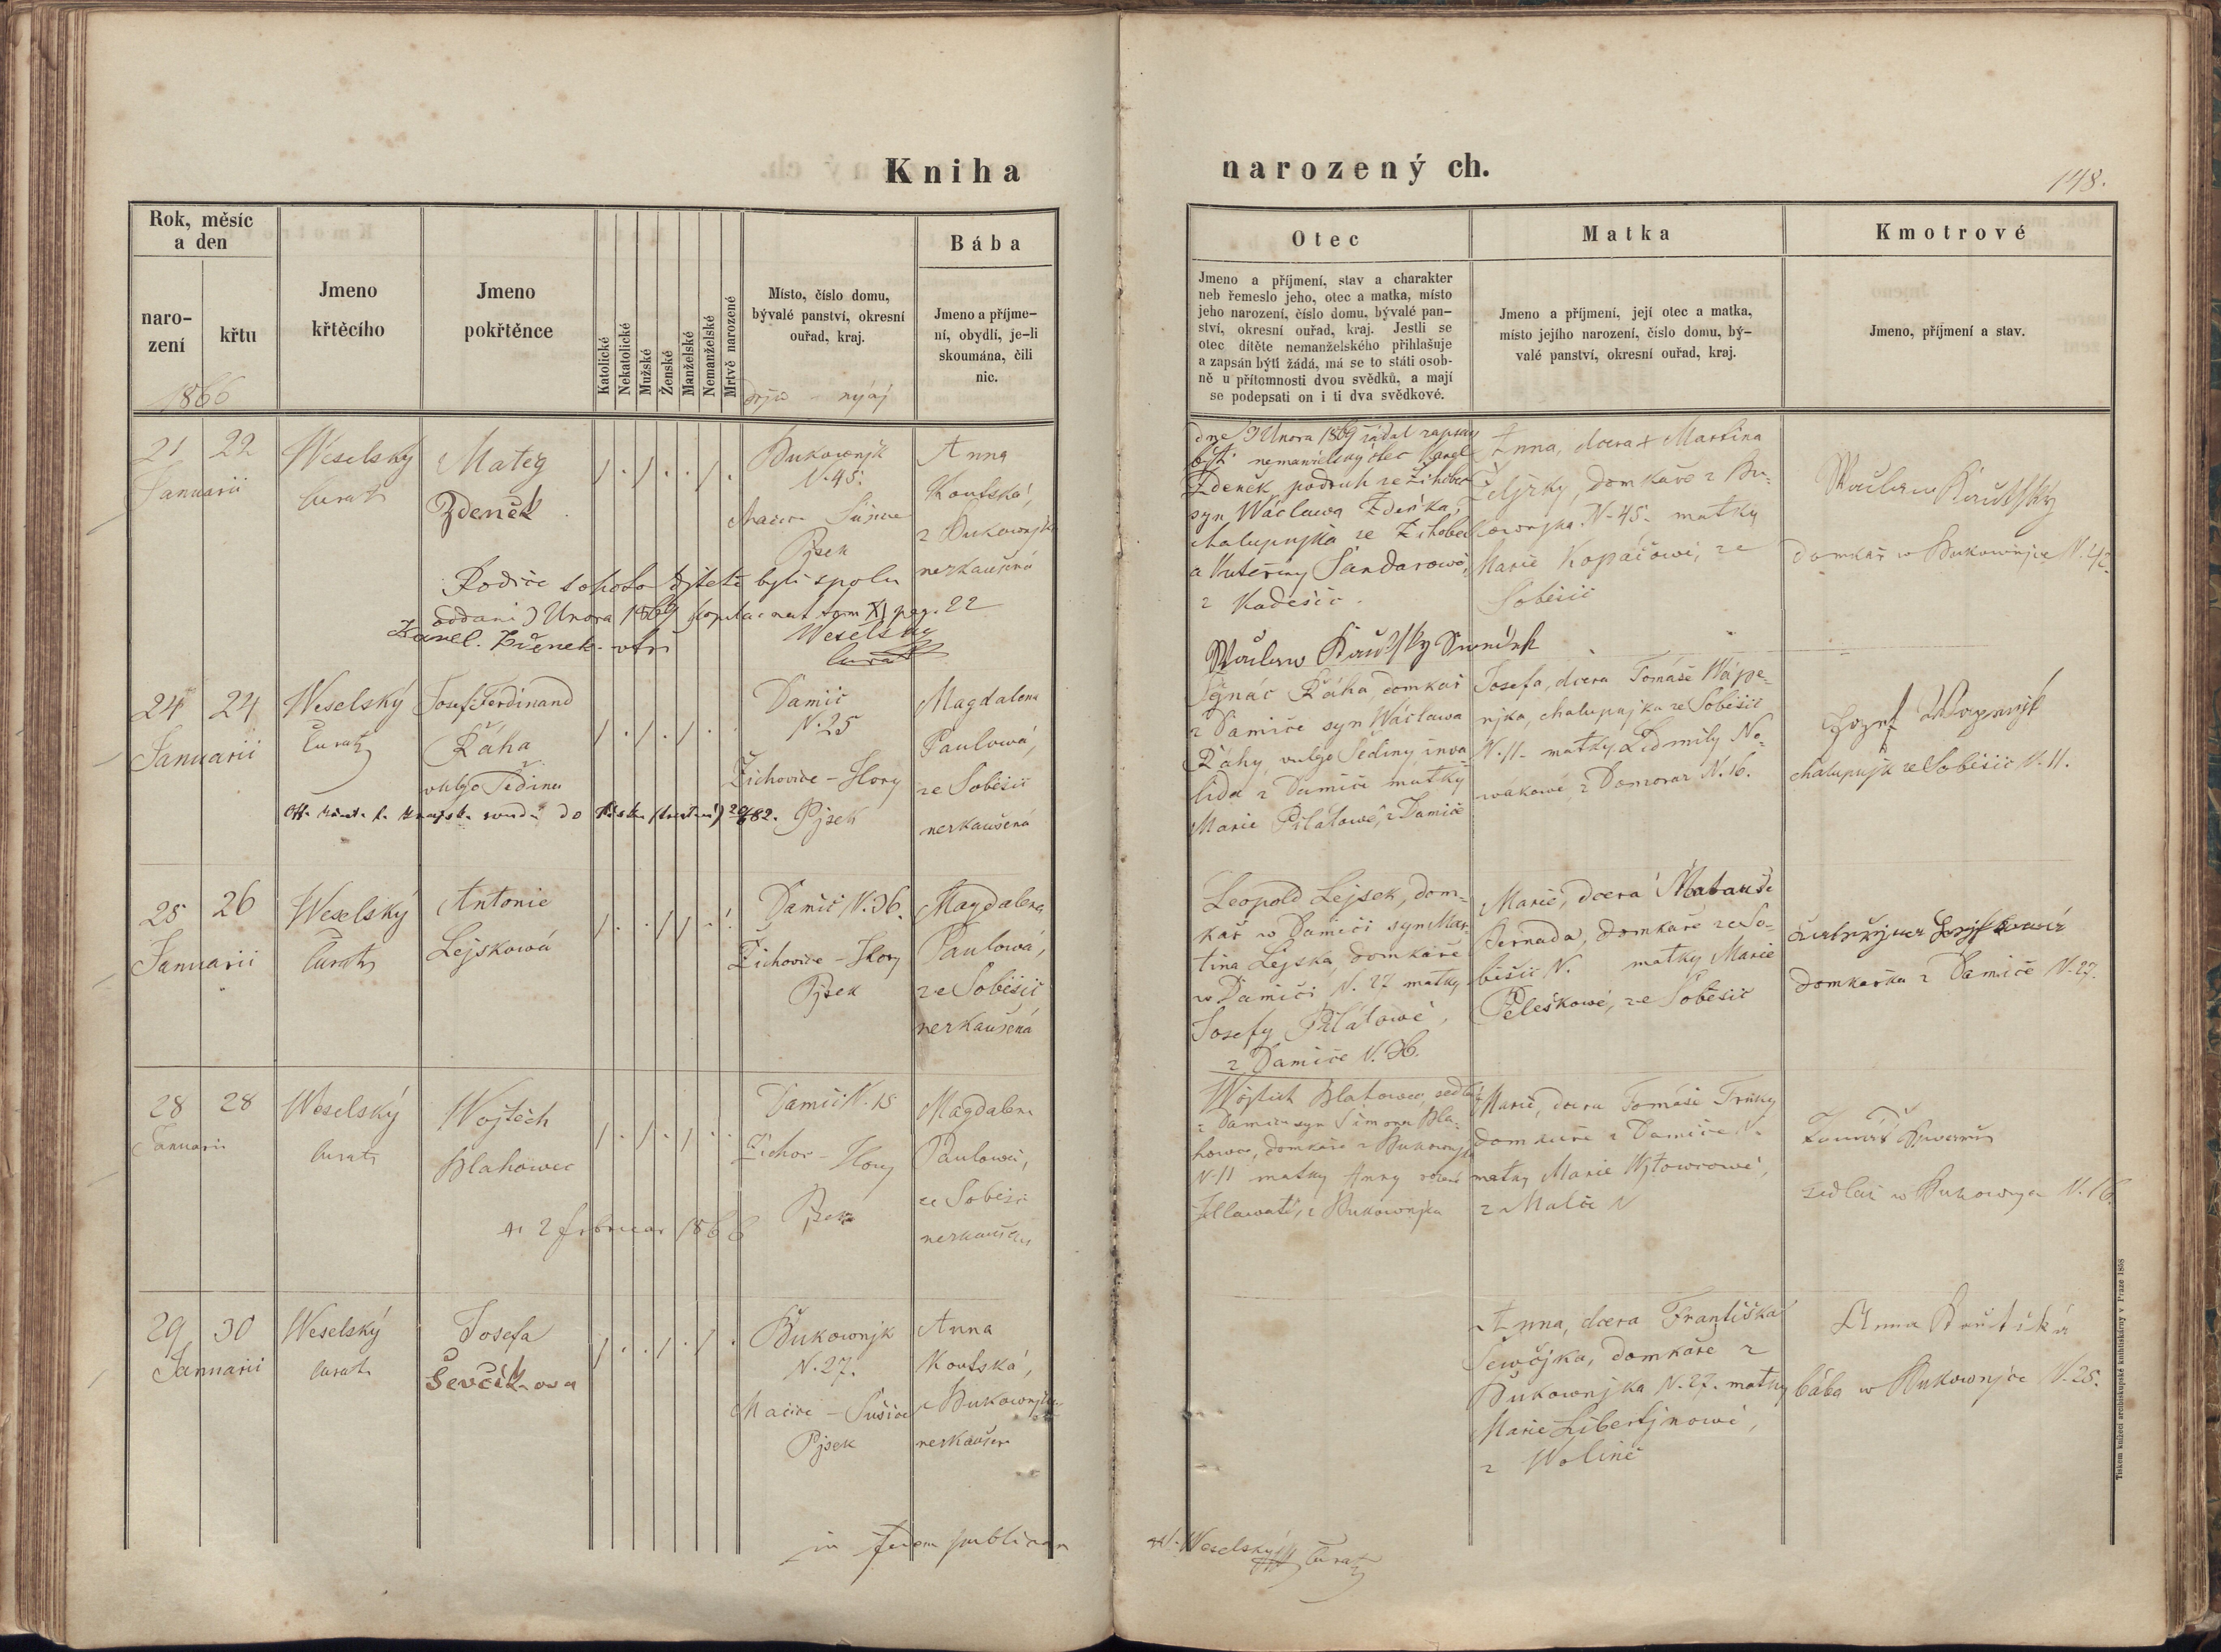 Kniha
Rok, měsíc
a den
naro-
zení
křtu
1866
Jmeno
křtěcího
Jmeno
pokřtěnce
Katolické
Nekatolické
Mužské
Ženské
Manželské
Nemanželské
Mrtvě narozené
Místo, číslo domu,
bývalé panství, okresní
ouřad, kraj.
Bába
Jmeno a příjme-
ní, obydlí, je-li
skoumána, čili
nic.
21 22
Januarii
Weselský
Curat
Matěg
Zdeněk
Bukownjk
N. 45.
Sušice
Pjsek
Anna
Koutská,
z Bukownjka
nezkaušená
Rodiče tohoto djtěte byli spolu
oddaní Února 1869 tom XI pag. 22
Weselský
Curat
24 24
Januarii
Weselský
Curat
Josef Ferdinand
Řáha
vulgo Šedina
Damič
N. 25
Žichovice - Hory
Pjsek
Magdalena
Paulowá,
ze Soběšic
nezkaušená
25 26
Januarii
Weselský
Curat
Antonie
Lejskowá
Damič N. 36.
Žichovice - Hory
Pjsek
Magdalena
Paulowá,
ze Soběšic
nezkaušená
28 28
Januarii
Weselský
Curat
Wojtěch
Blahowec
2 februar 1866
Damič N. 15
Žichov - Hory
Pjsek
Magdalena
Paulowá,
ze Soběšic
29 30
Januarii
Weselský
Curat
Josefa
Ševčíkova
Bukownjk
N. 27.
- Sušice
Pjsek
Anna
Koutská,
z Bukownjka
in fidem publicam
narozený ch.
148.
Otec
Jmeno a příjmení, stav a charakter
neb řemeslo jeho, otec a matka, místo
jeho narození, číslo domu, bývalé pan-
ství, okresní ouřad, kraj. Jestli se
otec dítěte nemanželského přihlašuje
a zapsán býti žádá, má se to státi osob-
ně u přítomnosti dvou svědků, a mají
se podepsati on i ti dva svědkové.
Matka
Jmeno a příjmení, její otec a matka,
místo jejího narození, číslo domu, bý-
valé panství, okresní ouřad, kraj.
Kmotrové
Jmeno, příjmení a stav.
dne Února 1869 žádal zapsán
býti nemanželský otec Karel
Zdeněk, podruh ze Žihobec
syn Wáclawa Zdeňka,
chalupnjka ze Žihobec
a Kateřiny Šandarowé,
z Kadešic.
Anna, dcera Martina
Željzky, domkáře z Bu-
kownjka N. 45. matky
Marie Kopačowé, ze
Soběšic
domkář w Bukownjce N. 42.
Ignác Řáha, domkář
z Damiče syn Wáclawa
Řáhy vulgo Šediny inwa-
lida z Damiče matky
Marie Pilátowé, z Damiče
Josefa, dcera Tomáše Wápe-
njka, chalupnjka ze Soběšic
N. 11. matky Lidmily No-
wákowé, z Domoraz N. 16.
chalupnjk ze Soběšic N. 11.
Leopold Lejsek, dom-
kář w Damiči syn Mar-
tina Lejska, domkáře
w Damiči N. 27 matky
Josefy Pilátowé,
z Damiče N. 36.
Marie, dcera Matauše
Bernada, domkáře ze So-
běšic N. matky Marie
Peleškowé, ze Soběšic
domkářka z Damiče N. 27.
Wojtěch Blahowec, sedlák
z Damiče syn Šimona Bla-
howce, domkáře z Bukownjka
N. 11 matky Anny rozené
z Bukownjka
Marie, dcera Tomáše Trůky
domkáře z Damiče N.
matky Marie
z Malče N
sedlák w Bukownjce N. 16.
Anna, dcera Františka
Šewčjka, domkáře z
Bukownjka N. 27. matky
Marie Libertjnowé,
z Wolině
Anna Koutská
bába w Bukownjce N. 25.
Weselský Curat
Tiskem knížecí arcibiskupské knihtiskárny v Praze 1858